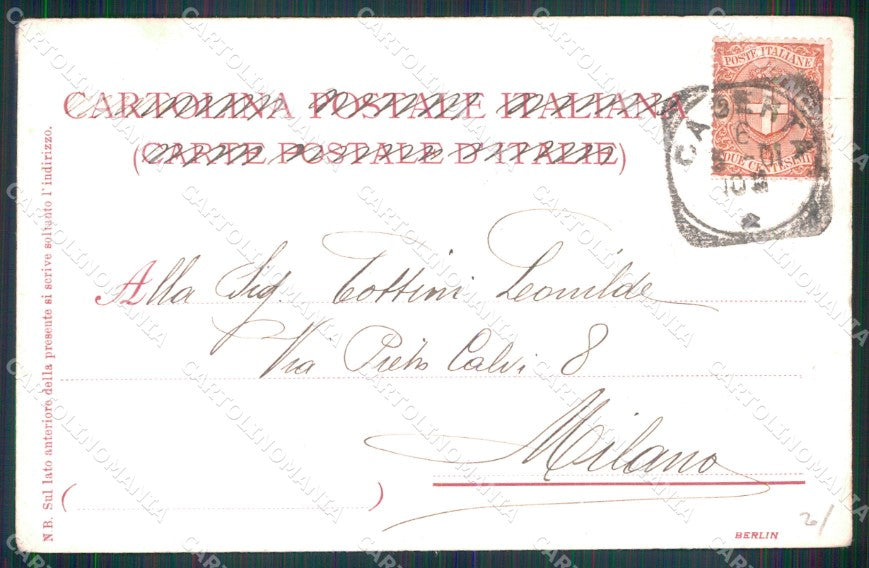 POSTE ITALIANE
DUE CENTESIMI
CARTOLINA POSTALE ITALIANA
(CARTE POSTALE D'ITALIE)
N.B. Sul lato anteriore della presente si scrive soltanto l'indirizzo.
Alla Sig. Tottini Leonilde
Via Pietro Calvi 8
Milano
( )
BERLIN
CARTOLINOMANIA